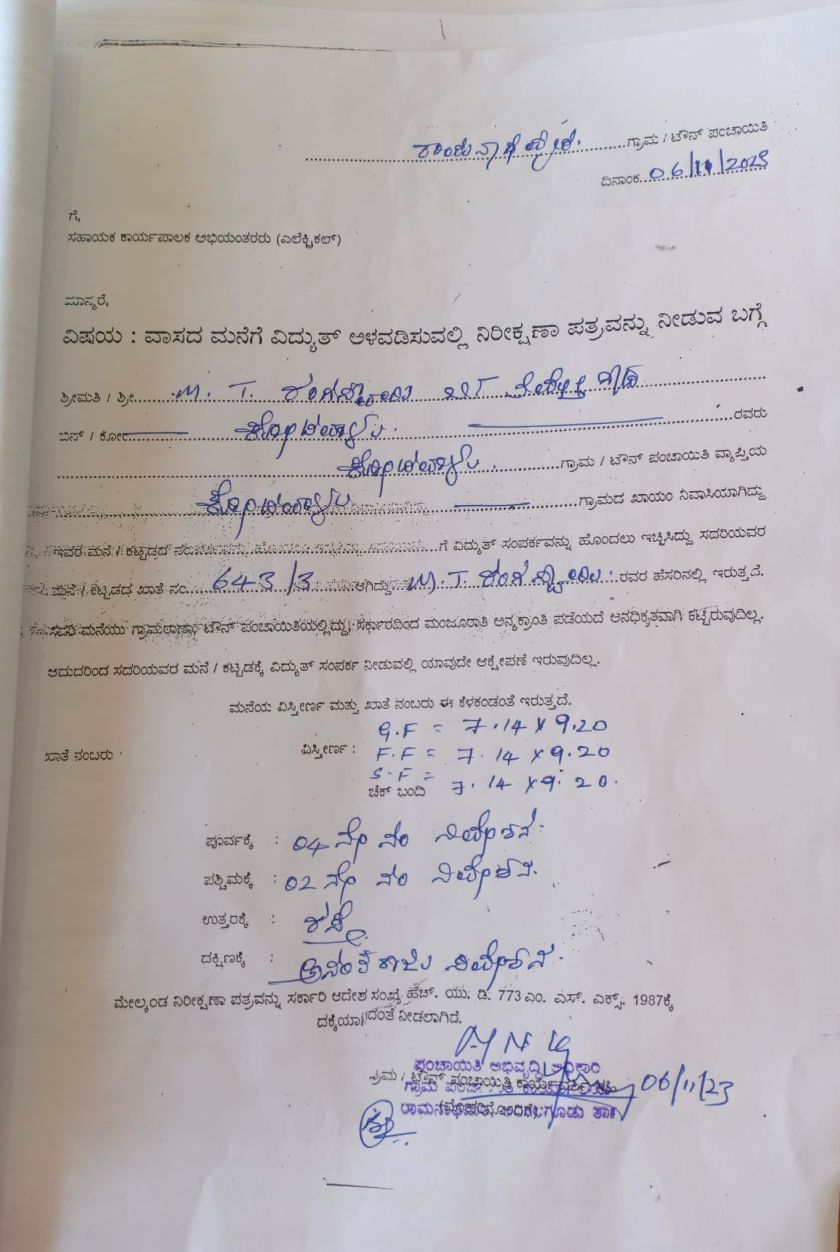 ಗ್ರಾಮ / ಟೌನ್ ಪಂಚಾಯಿತಿ
ದಿನಾಂಕ 06/11/2023
ಗೆ,
ಸಹಾಯಕ ಕಾರ್ಯಪಾಲಕ ಅಭಿಯಂತರರು (ಎಲೆಕ್ಟ್ರಿಕಲ್)
ಮಾನ್ಯರೆ,
ವಿಷಯ : ವಾಸದ ಮನೆಗೆ ವಿದ್ಯುತ್ ಅಳವಡಿಸುವಲ್ಲಿ ನಿರೀಕ್ಷಣಾ ಪತ್ರವನ್ನು ನೀಡುವ ಬಗ್ಗೆ
ಶ್ರೀಮತಿ / ಶ್ರೀ M. T.
ಬಿನ್ / ಕೋರವರು
ಗ್ರಾಮ / ಟೌನ್ ಪಂಚಾಯಿತಿ ವ್ಯಾಪ್ತಿಯ
ಗ್ರಾಮದ ಖಾಯಂ ನಿವಾಸಿಯಾಗಿದ್ದು
ಇವರ ಮನೆ / ಕಟ್ಟಡದ ಗೆ ವಿದ್ಯುತ್ ಸಂಪರ್ಕವನ್ನು ಹೊಂದಲು ಇಚ್ಛಿಸಿದ್ದು ಸದರಿಯವರ
ಮನೆ / ಕಟ್ಟಡದ ಖಾತೆ ನಂ 643/3 ಆಗಿದ್ದು M. T. ರವರ ಹೆಸರಿನಲ್ಲಿ ಇರುತ್ತದೆ.
ಸದರಿ ಮನೆಯು ಗ್ರಾಮಠಾಣಾ, ಟೌನ್ ಪಂಚಾಯಿತಿಯಲ್ಲಿದ್ದು, ಸರ್ಕಾರದಿಂದ ಮಂಜೂರಾತಿ ಅನ್ಯಕ್ರಾಂತಿ ಪಡೆಯದೆ ಅನಧಿಕೃತವಾಗಿ ಕಟ್ಟಿರುವುದಿಲ್ಲ.
ಆದುದರಿಂದ ಸದರಿಯವರ ಮನೆ / ಕಟ್ಟಡಕ್ಕೆ ವಿದ್ಯುತ್ ಸಂಪರ್ಕ ನೀಡುವಲ್ಲಿ ಯಾವುದೇ ಆಕ್ಷೇಪಣೆ ಇರುವುದಿಲ್ಲ.
ಮನೆಯ ವಿಸ್ತೀರ್ಣ ಮತ್ತು ಖಾತೆ ನಂಬರು ಈ ಕೆಳಕಂಡಂತೆ ಇರುತ್ತದೆ.
G.F = 7.14 X 9.20
ಖಾತೆ ನಂಬರು ವಿಸ್ತೀರ್ಣ : F.F = 7.14 X 9.20
S.F = 7.14 X 9.20.
ಚೆಕ್ ಬಂದಿ
ಪೂರ್ವಕ್ಕೆ : 04 ನೇ ನಂ ನಿವೇಶನ.
ಪಶ್ಚಿಮಕ್ಕೆ : 02 ನೇ ನಂ ನಿವೇಶನ.
ಉತ್ತರಕ್ಕೆ : ರಸ್ತೆ
ದಕ್ಷಿಣಕ್ಕೆ : ಅನಂತರಾಜು ನಿವೇಶನ.
ಮೇಲ್ಕಂಡ ನಿರೀಕ್ಷಣಾ ಪತ್ರವನ್ನು ಸರ್ಕಾರಿ ಆದೇಶ ಸಂಖ್ಯೆ ಹೆಚ್. ಯು. ಡಿ. 773 ಎಂ. ಎಸ್. ಎಕ್ಸ್. 1987ಕ್ಕೆ
ನೀಡಲಾಗಿದೆ.
ಪಂಚಾಯಿತಿ ಅಭಿವೃದ್ಧಿ ಅಧಿಕಾರಿ
06/11/23